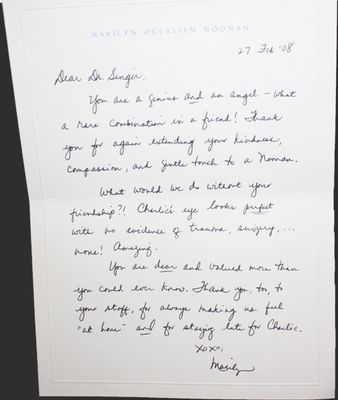 MARILYN OCLASSEN NOONAN
27 Feb '08
Dear Dr. Singer,
You are a genius and an angel - what
a rare combination in a friend! Thank
you for again extending your kindness,
compassion, and gentle touch to a Noonan.
What would we do without your
friendship?! Charlie's eye looks perfect
with no evidence of trauma, surgery, ...
none! Amazing.
You are dear and valued more than
you could ever know. Thank you, too, to
your staff, for always making us feel
"at home" and for staying late for Charlie.
xoxo,
Marilyn